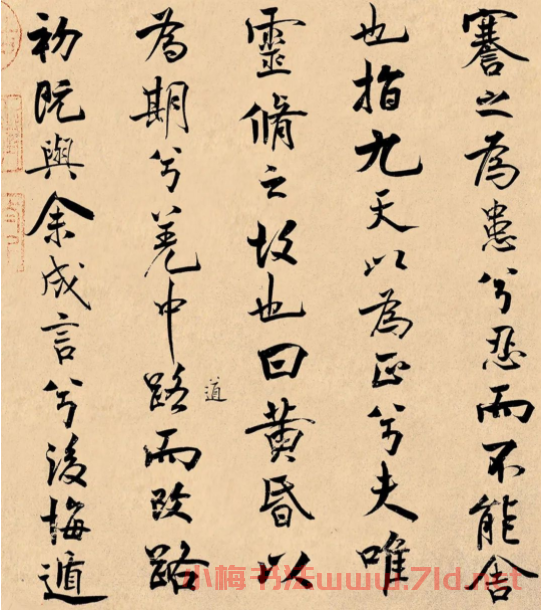 謇之為患兮忍而不能舍
也指九天以為正兮夫唯
靈脩之故也曰黄昏以
為期兮羌中路而改路
道
初既與余成言兮後悔遁
小梅书法www.7ld.net